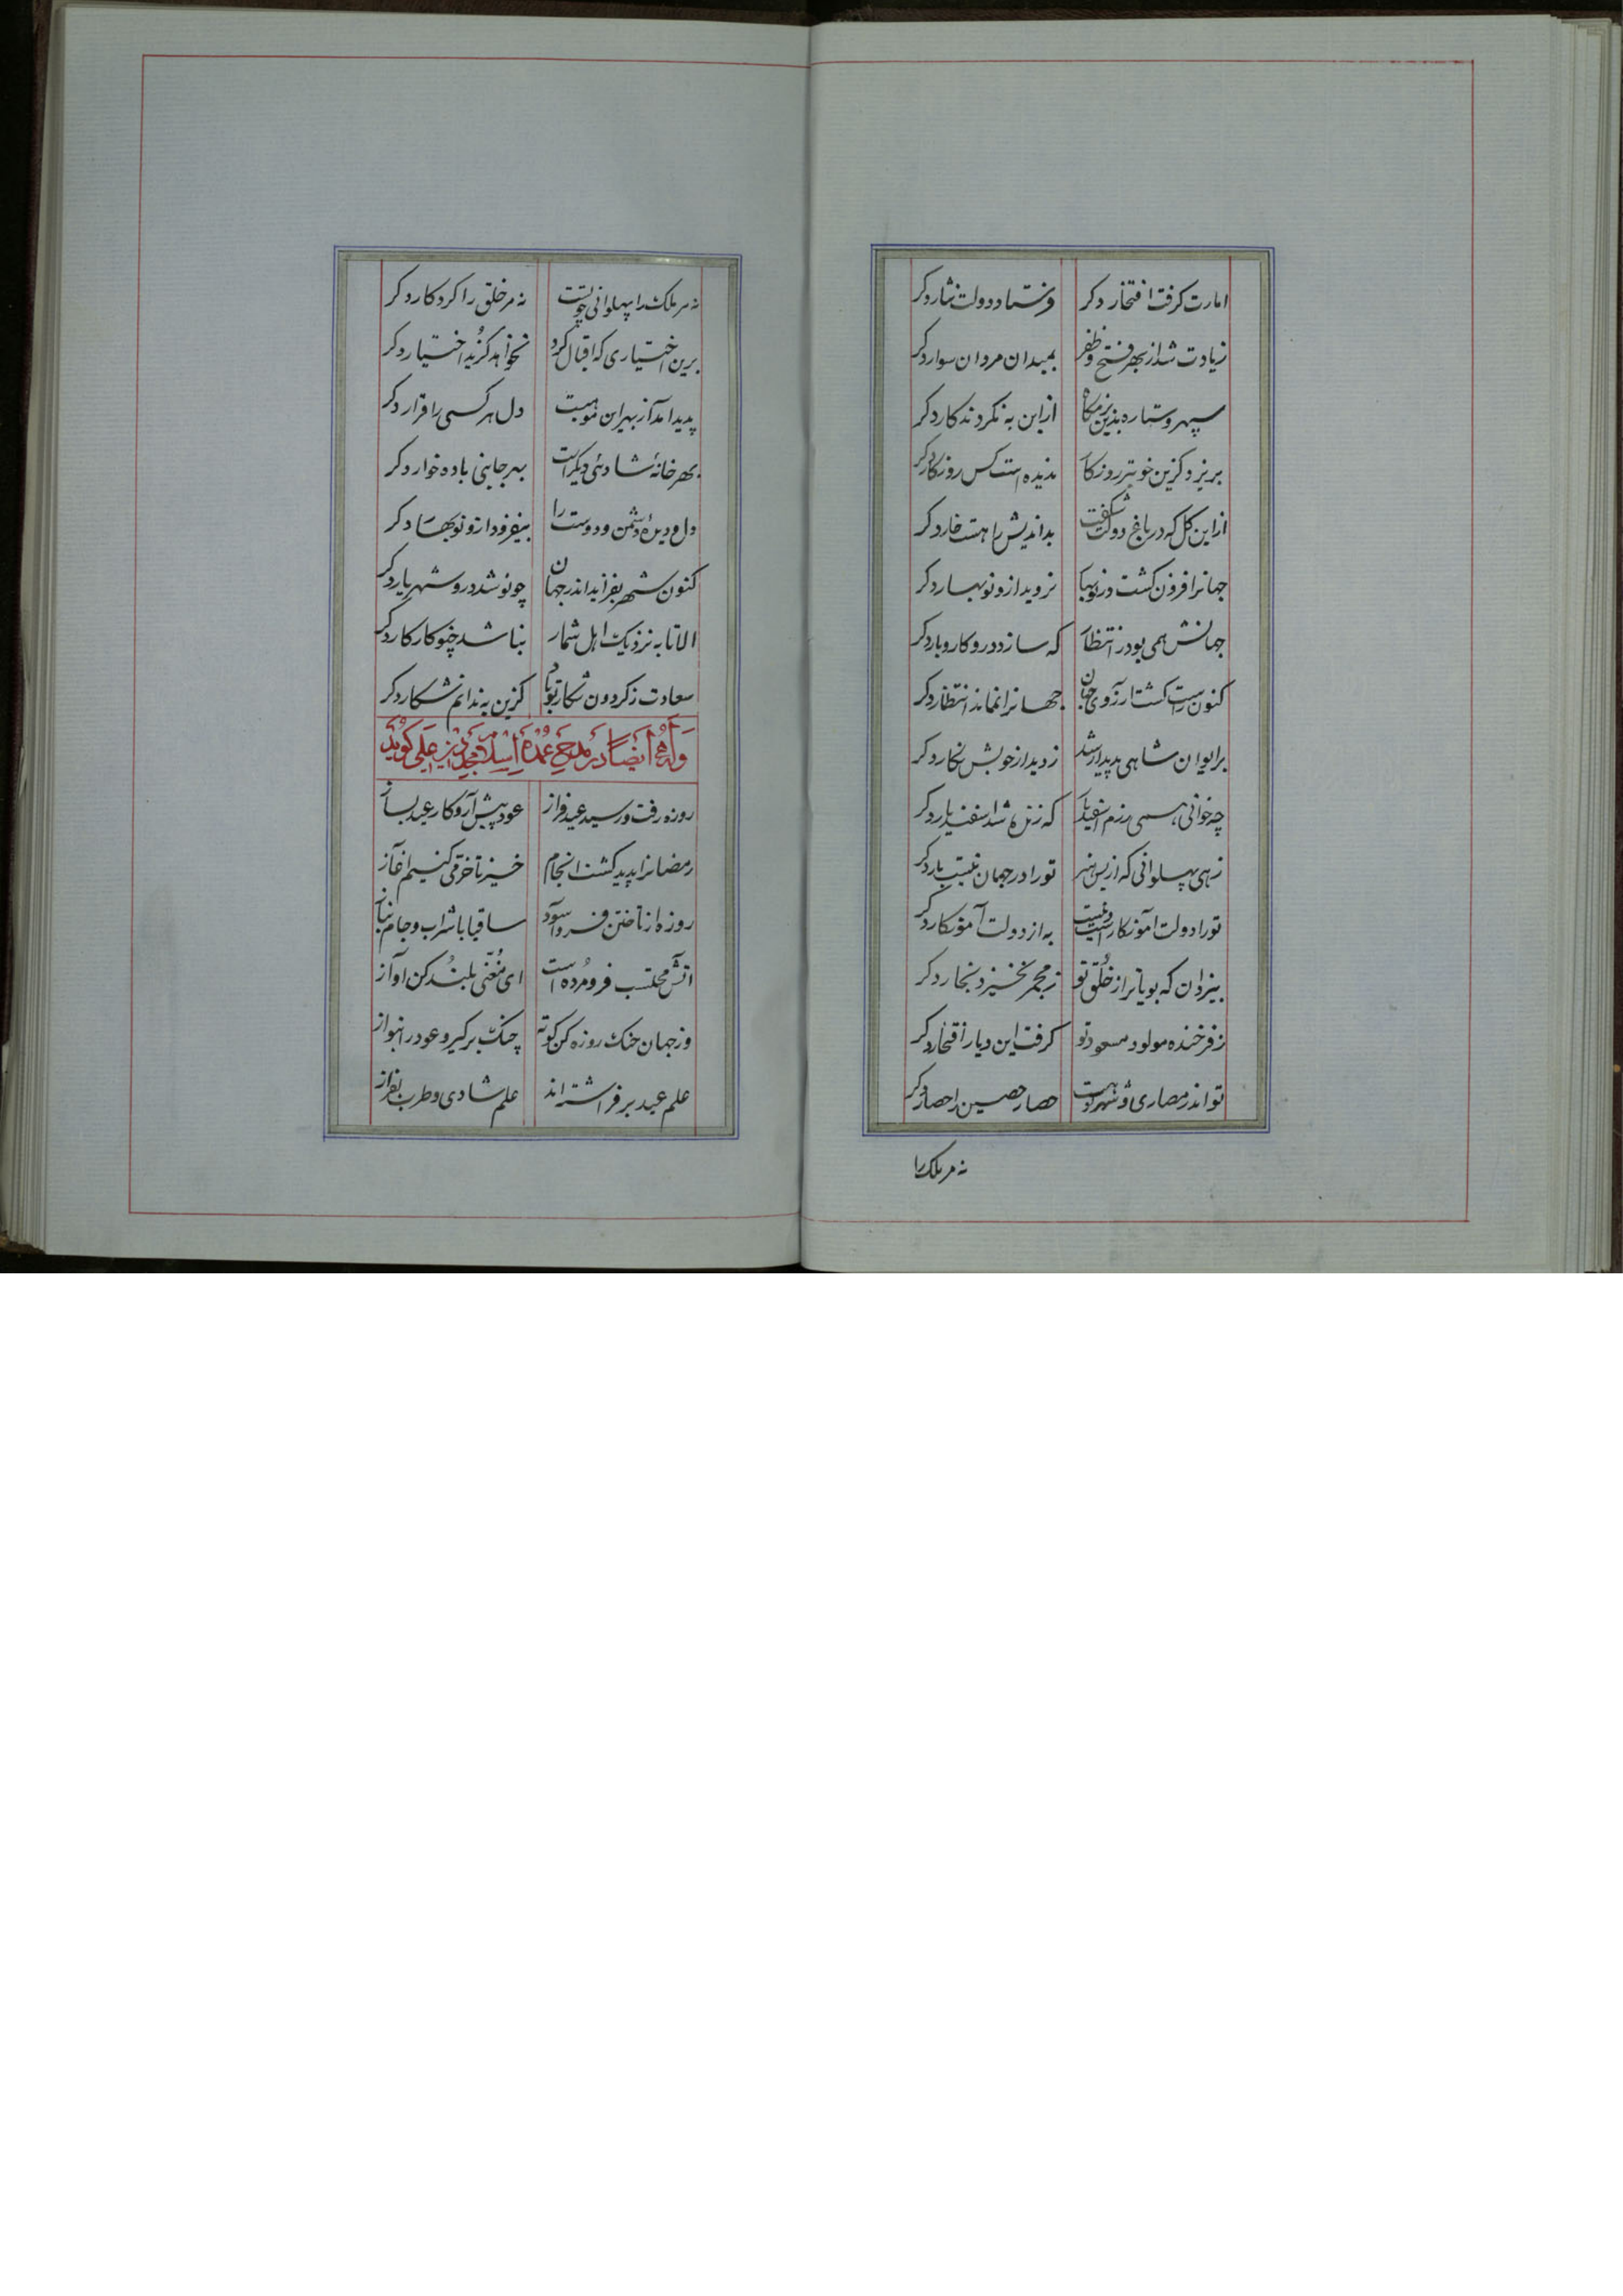 امارت گرفت افتخار دگر فرستاد دولت نثار دگر
زیادت شد از بهر فتح و ظفر بمیدان مردان سوار دگر
سپهر و ستاره بدین بزمگاه از این به نکردند کار دگر
بریزد کزین خوبتر روزگار ندیده است کس روزگار دگر
از این گل که در باغ دولت شکفت بداندیش را هست خار دگر
جهانرا فزون گشت در نوبهار نروید ازو نوبهار دگر
جهانش همی بود در انتظار که سازد درو کاروبار دگر
کنون راست گشت ارزوی جهان جهانرا نماند انتظار دگر
بر ایوان شاهی پدیدار شد ز دیدار خوبش نگار دگر
چه خوانی همی رزم اسفندیار که زنده شد اسفندیار دگر
زهی پهلوانی که از بس هنر تو را در جهان نیست یار دگر
تو را دولت آموزگار است و نیست به از دولت آموزگار دگر
بیزدان که بویاتر از خُلق تو ز مجمر نخیزد بخار دگر
ز فرخنده مولود مسعود تو گرفت این دیار افتخار دگر
تو اندر حصاری و شهر تو هست حصار حصین را حصار دگر
نه مر ملک را
نه مر ملک را پهلوانی چو تست نه مر خلق را کردکار دگر
برین اختیاری که اقبال کرد نخواهد گزید اختیار دگر
پدید امد از بهر این موهبت دل هر کسی را قرار دگر
بهر خانهٔ شادئی دیگر است بهر جانبی باده خوار دگر
دل و دیدهٔ دشمن و دوست را بیفزود ازو نوبهار دگر
کنون شهر بفزاید اندر جهان چو نو شد درو شهریار دگر
الا تا به نزدیک اهل شمار بناشد چو کار کار دگر
سعادت ز گردون شکار تو باد کزین به ندانم شکار دگر
وَلَهُ أیضاً در مدح عُمدة اسلام مجد دین علی گوید
روزه رفت و رسید عید فراز عود پیش آر و کار عید بساز
رمضانرا پدید گشت انجام خیز تا خرمی کنیم اغاز
روزه از تاختن فرو آسود ساقیا با شراب و جام بتاز
اتش محتسب فرو مُرده است ای مُغنّی بلند کن اواز
وز جهان جنک روزه کن کوته چنک برگیر و عود را بنواز
علم عید بر فراشته اند علم شادی و طرب بفراز